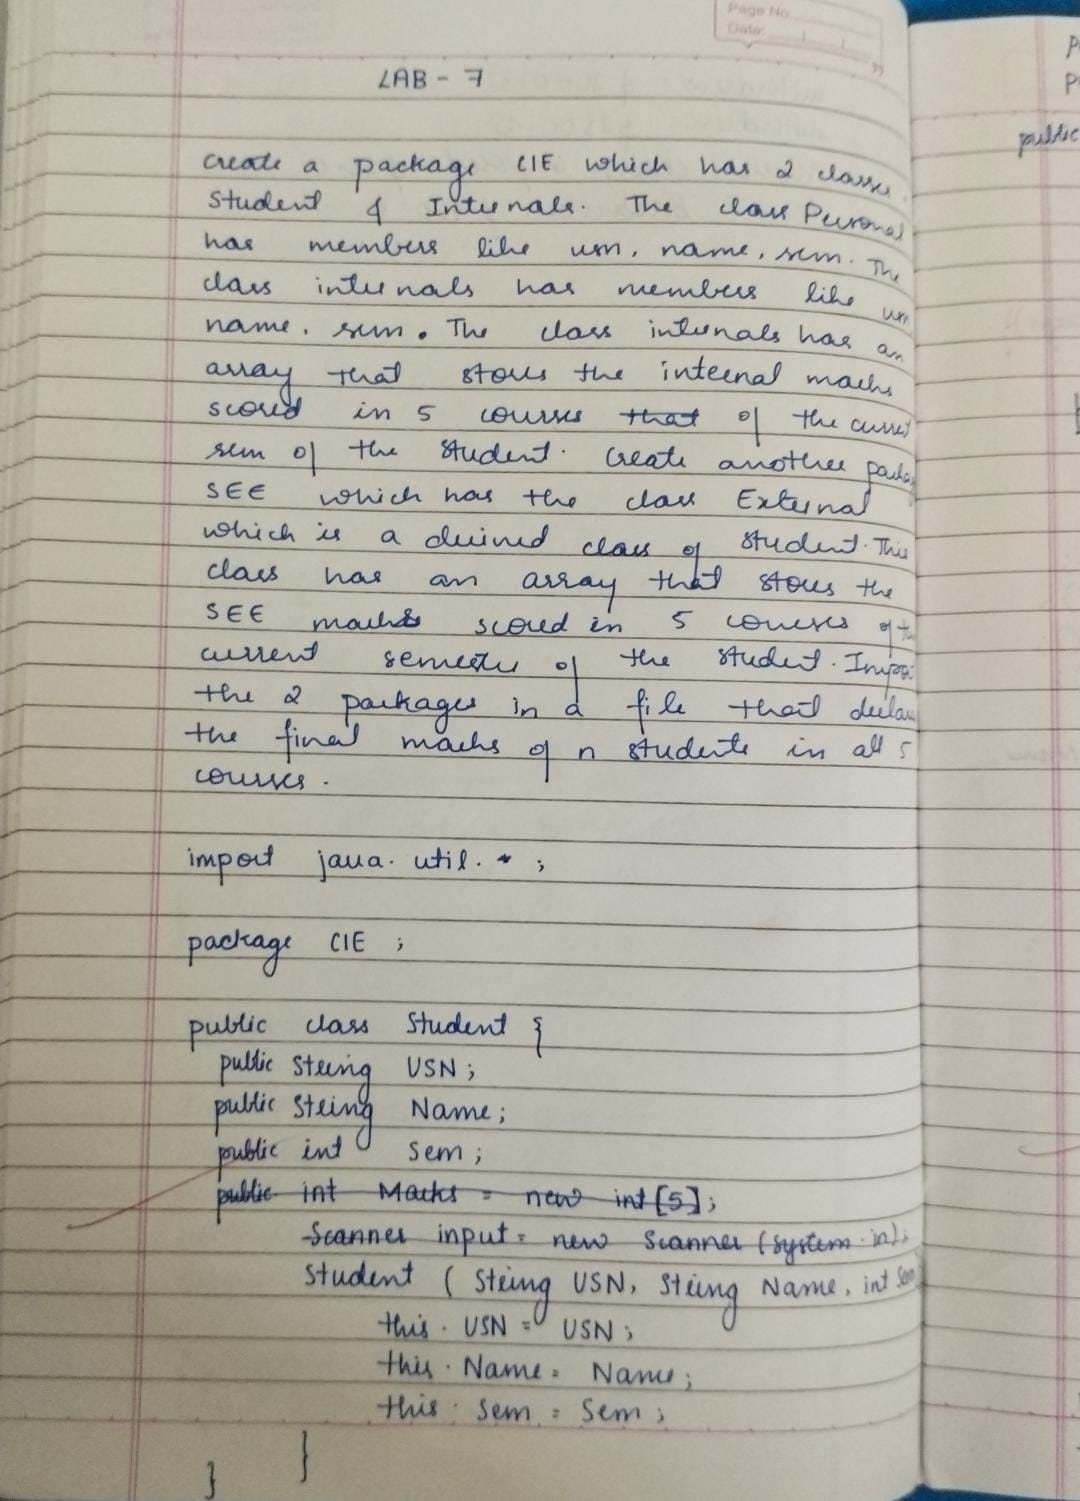 Page No.
Date:
LAB - 7
create a package CIE which has 2 classes
Student & Internals. The class Personal
has members like usn, name, sem. The
class internals has members like usn
name, sem. The class internals has an
array that stores the internal marks
scored in 5 courses that of the current
sem of the student. Create another
SEE which has the class External
which is a derived class of student. This
class has an array that stores the
SEE marks scored in 5 courses of
current semester of the student.
the 2 packages in a file that
the final marks of n students in all 5
courses.
import java.util.* ;
package CIE ;
public class Student {
public String USN ;
public String Name ;
public int sem ;
public int Marks = new int [5] ;
Scanner input = new Scanner (System.in) ;
Student ( String USN, String Name, int Sem
this. USN = USN ;
this. Name = Name ;
this. sem = Sem ;
}
}
public